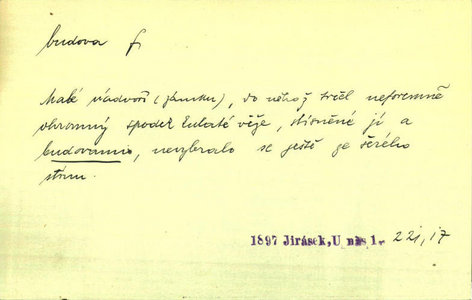 budova f
Malé nádvoří (zámku), do něhož trčel neforemně
ohromný spodek kulaté věže, stísněné jí a
budovami, nevybralo se ještě ze šerého
stínu.
1897 Jirásek, U nás 1. 221, 17